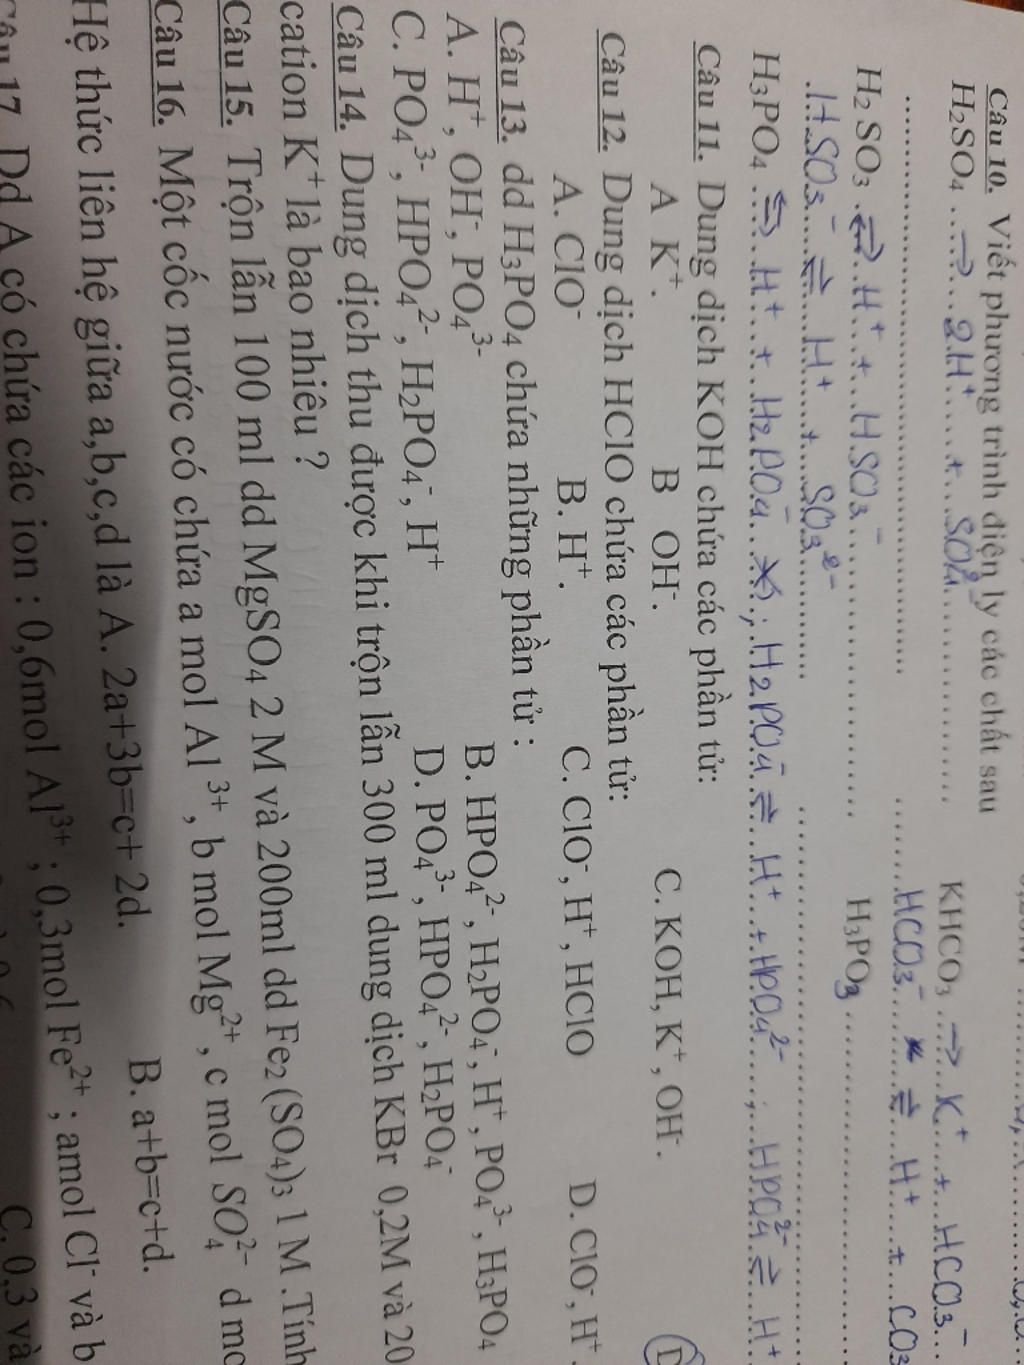 Câu 10. Viết phương trình điện ly các chất sau
H₂SO₄ ...→... 2H⁺ ... + ... SO₄²⁻ ............... KHCO₃ ...→... K⁺ ... + ... HCO₃⁻ ...
........................................ HCO₃⁻ ... ⇌ ... H⁺ ... + ... CO₃
H₂SO₃ ..⇌.. H⁺ ... + ... HSO₃⁻ ............... H₃PO₃ ...............
HSO₃⁻ ... ⇌ ... H⁺ ... + ... SO₃²⁻ ...............
H₃PO₄ ...⇌... H⁺ ... + ... H₂PO₄⁻ ... ; H₂PO₄⁻ ⇌ ... H⁺ ... + HPO₄²⁻ ... ; ... HPO₄²⁻ ⇌ ... H⁺
Câu 11. Dung dịch KOH chứa các phần tử:
A K⁺. B OH⁻. C. KOH, K⁺, OH⁻. D
Câu 12. Dung dịch HClO chứa các phần tử:
A. ClO⁻ B. H⁺. C. ClO⁻, H⁺, HClO D. ClO⁻, H⁺.
Câu 13. dd H₃PO₄ chứa những phần tử :
A. H⁺, OH⁻, PO₄³⁻ B. HPO₄²⁻, H₂PO₄⁻, H⁺, PO₄³⁻, H₃PO₄
C. PO₄³⁻, HPO₄²⁻, H₂PO₄⁻, H⁺ D. PO₄³⁻, HPO₄²⁻, H₂PO₄⁻
Câu 14. Dung dịch thu được khi trộn lẫn 300 ml dung dịch KBr 0,2M và 20
cation K⁺ là bao nhiêu ?
Câu 15. Trộn lẫn 100 ml dd MgSO₄ 2 M và 200ml dd Fe₂(SO₄)₃ 1 M .Tính
Câu 16. Một cốc nước có chứa a mol Al³⁺, b mol Mg²⁺, c mol SO₄²⁻ d mo
Hệ thức liên hệ giữa a,b,c,d là A. 2a+3b=c+ 2d. B. a+b=c+d.
Câu 17. Dd A có chứa các ion : 0,6mol Al³⁺ ; 0,3mol Fe²⁺ ; amol Cl⁻ và b
C. 0,3 và